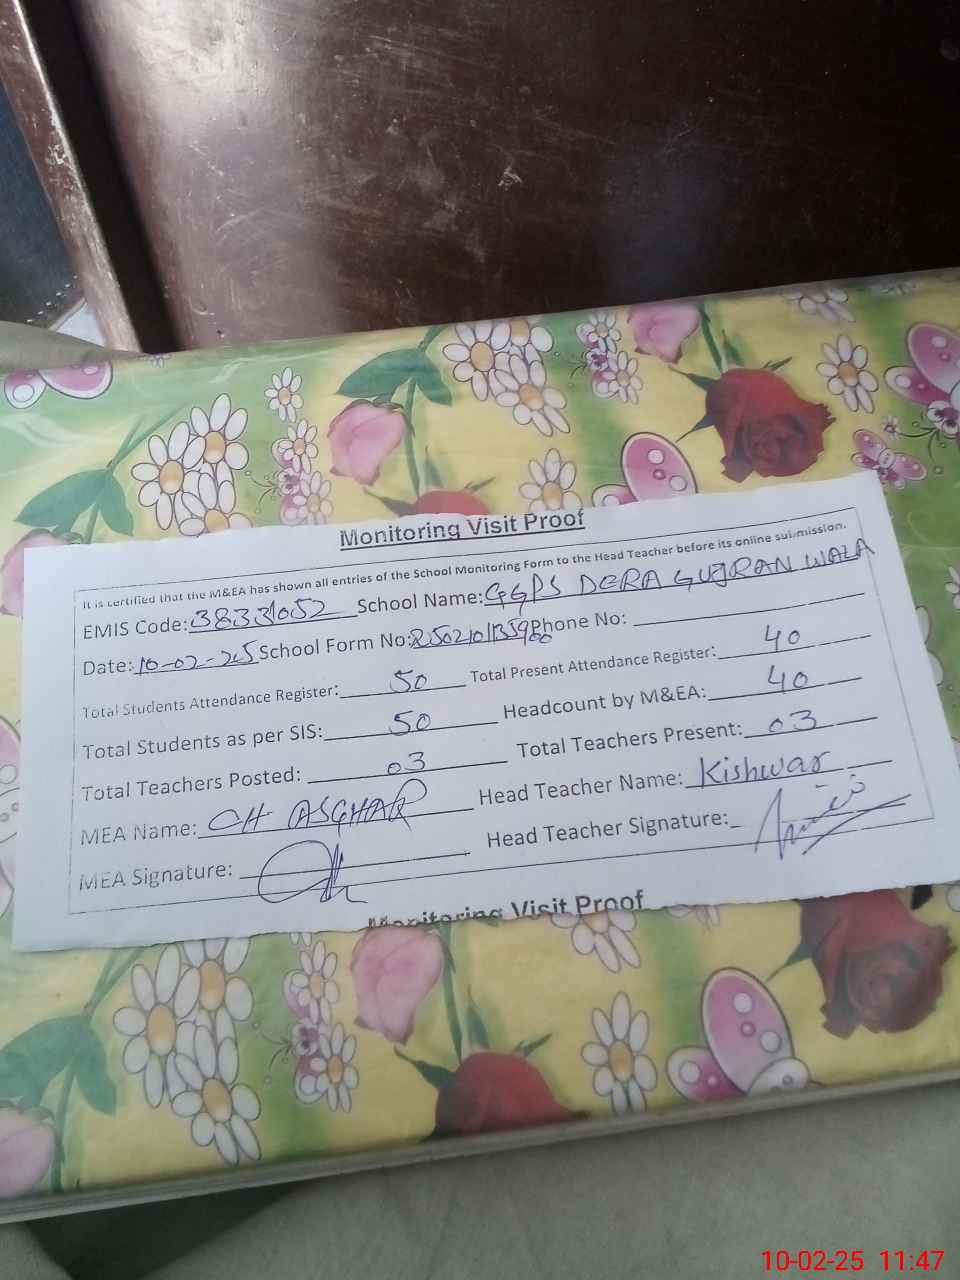 Monitoring Visit Proof
It is certified that the M&EA has shown all entries of the School Monitoring Form to the Head Teacher before its online submission.
EMIS Code: 38331052 School Name: GGPS DERA GUJRAN WALA
Date: 10-02-25 School Form No: Phone No:
Total Students Attendance Register: 50 Total Present Attendance Register: 40
Total Students as per SIS: 50 Headcount by M&EA: 40
Total Teachers Posted: 03 Total Teachers Present: 03
MEA Name: CH ASGHAR Head Teacher Name: Kishwar
MEA Signature: Head Teacher Signature:
Monitoring Visit Proof
10-02-25 11:47